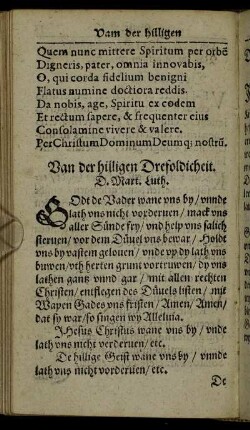 Vam der hilligen
Quem nunc mittere Spiritum per orbē
Digneris, pater, omnia innovabis,
O, qui corda fidelium benigni
Flatus numine doctiora reddis.
Da nobis, age, Spiritu ex eodem
Et rectum sapere, & frequenter eius
Consolamine vivere & valere.
Per Christum Dominum Deumq; nostrū.
Van der hilligen Drefoldicheit.
D. Mart. Luth.
GOdt de Vader wane vns by / vnnde
lath vns nicht vorderuen / mack vns
aller Sünde fry / vnd help vns salich
steruen / vor dem Düuel vns bewar / Holdt
vns by vastem gelouen / vnde vp dy lath vns
buwen / vth herten grunt vortruwen / dy vns
lathen gantz vnnd gar / mit allen rechten
Christen / entflegen des Düuels listen / mit
Wapen Gades vns fristen / Amen / Amen /
dat sy war / so singen wy Alleluia.
JHesus Christus wane vns by / vnde
lath vns nicht verderuen / etc.
De hillige Geist wane vns by / vnnde
lath vns nicht vorderuen / etc.
De